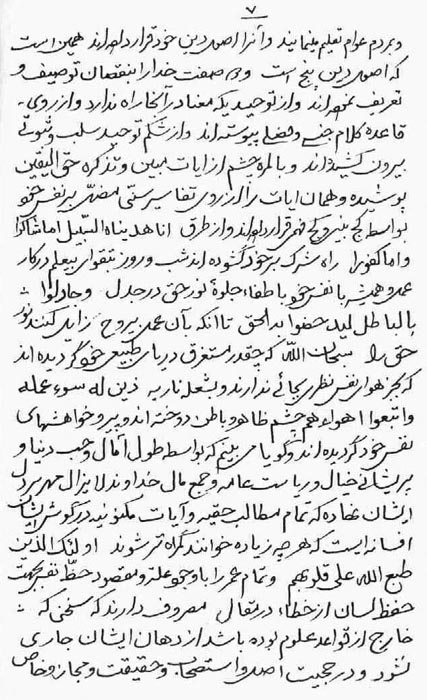 ٧
و بمردم عوام تعلیم مینمایند و آنرا اصول دین خود قرار داده‌اند همین است
که اصول دین پنج است و صفت خدا را بنقصان توصیف و
تعریف نموده‌اند و از توحیدیکه معناد در آنجا راه ندارد و از روی
قاعده کلام جنسی و فصلی پیوسته‌اند و از شکم توحید سلب و ثبوتی
بیرون کشیده‌اند و بالمره چشم از ایات مبین و تذکره حق الیقین
پوشیده و همان ایات را از روی تفاسیر ستی مضل بر نفس خود
بواسطه کج بینی و کج فهمی قرار داده‌اند و از طرق انا هدیناه السبیل اما شاکرا
و اما کفورا راه شرک بر خود گشوده‌اند شب و روز بتقوای بیعلم در کار
عمد و همیشه با نفس خود باطفاء جلوهٔ نور حق در جدل و جادلوا
بالباطل لیدحضوا به الحق تا آنکه بآن عمد بیروح زایل کنند نور
حق را سبحان الله که چقدر مستغرق دریای طبیعی خود گردیده‌اند
که بجز هوای نفس نظری بجائی ندارند و بشعله ناریه زین له سوء عمله
و اتبعوا اهواءهم چشم ظاهر و باطن دوخته‌اند و پیرو خواهشهای
نفس خود گردیده‌اند و گویا می بینم که بواسطه طول آمال و حب دنیا و
پریشانی خیال و ریاست عامه و جمع مال خداوند لایزال مهر بر دل
ایشان نهاده که تمام مطالب حقیه و آیات مکنونیه در گوش ایشان
افسانه ایست که هر چه زیاده خوانند گمراه‌تر شوند اولئک الذین
طبع الله علی قلوبهم و تمام عمر را با وجود علم و مقصود حظ نفس بجهت
حفظ لسان از خطاء در مقال مصروف دارند که سخنی که
خارج از قواعد علوم بوده باشد از دهان ایشان جاری
نشود و در حجیت اصل و استصحاب و حقیقت و مجاز و خاص